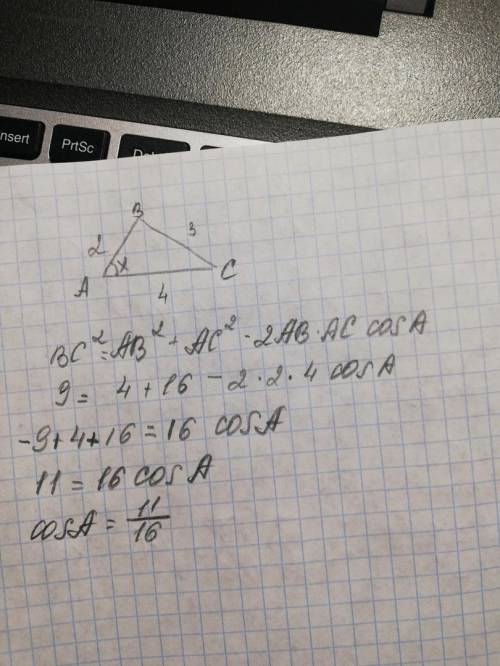 Insert
PrtSc
B
2
3
A
x
C
4
BC² = AB² + AC² - 2AB · AC cosA
9 = 4 + 16 - 2 · 2 · 4 cosA
-9 + 4 + 16 = 16 cosA
11 = 16 cosA
cosA = 11/16